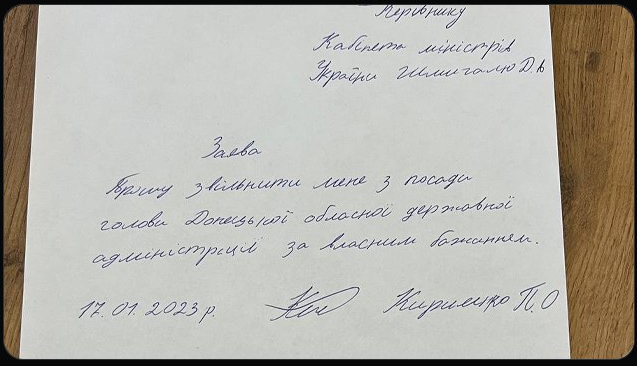 Керівнику
Кабінета міністрів
України Шмигалю Д.А
Заява
Прошу звільнити мене з посади
голови Донецької обласної державної
адміністрації за власним бажанням.
17.01.2023 р. Кириленко П.О